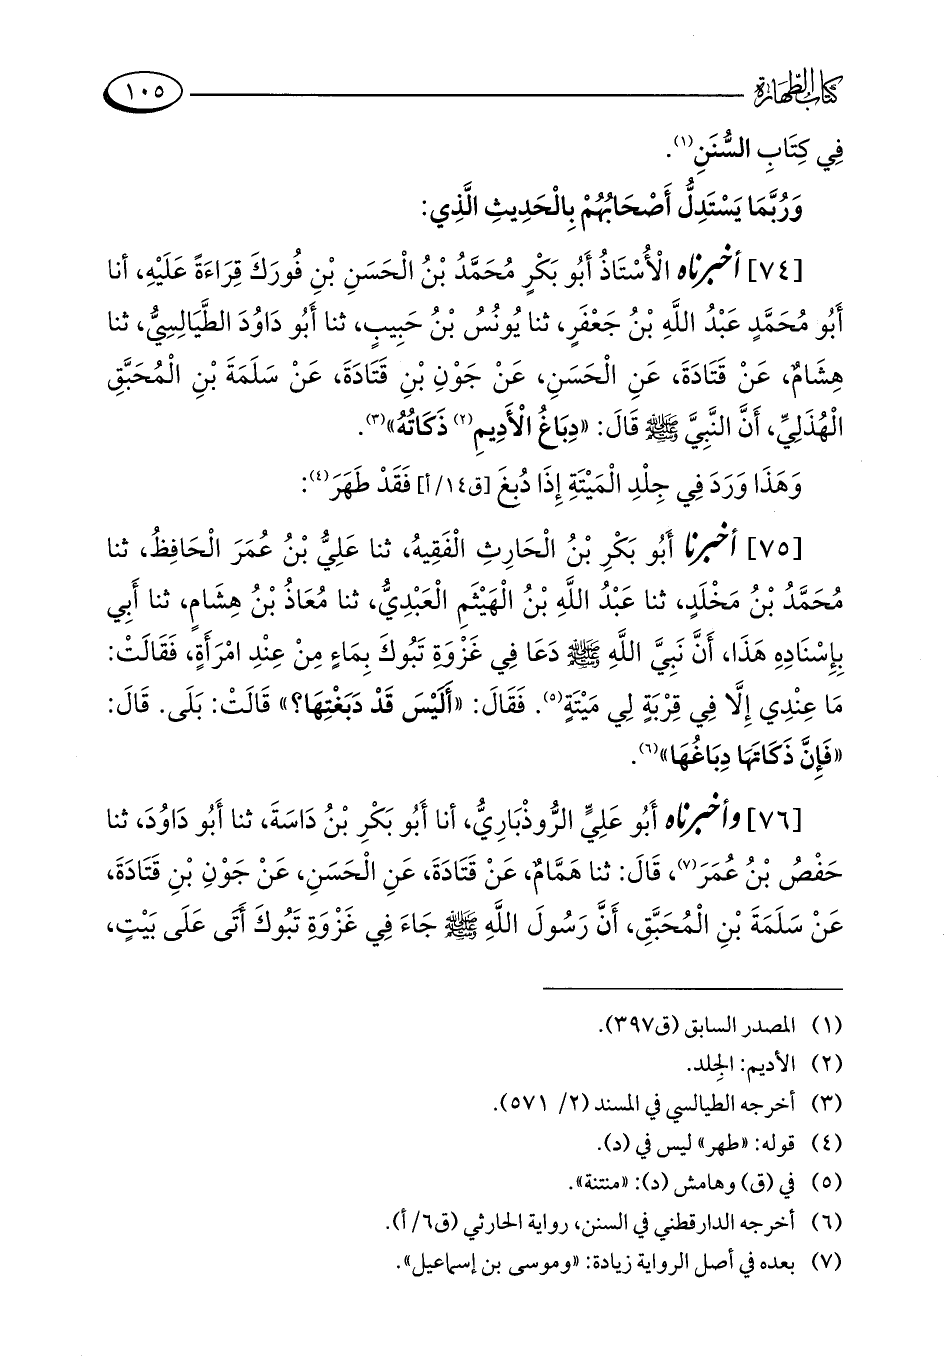 كتاب الطهارة ١٠٥
فِي كِتَابِ السُّنَنِ(١).
وَرُبَّمَا يَسْتَدِلُّ أَصْحَابُهُمْ بِالْحَدِيثِ الَّذِي:
[٧٤] أخبرناه الْأُسْتَاذُ أَبُو بَكْرٍ مُحَمَّدُ بْنُ الْحَسَنِ بْنِ فُورَكَ قِرَاءَةً عَلَيْهِ، أنا
أَبُو مُحَمَّدٍ عَبْدُ اللَّهِ بْنُ جَعْفَرٍ، ثنا يُونُسُ بْنُ حَبِيبٍ، ثنا أَبُو دَاوُدَ الطَّيَالِسِيُّ، ثنا
هِشَامٌ، عَنْ قَتَادَةَ، عَنِ الْحَسَنِ، عَنْ جَوْنِ بْنِ قَتَادَةَ، عَنْ سَلَمَةَ بْنِ الْمُحَبَّقِ
الْهُذَلِيِّ، أَنَّ النَّبِيَّ ﷺ قَالَ: «دِبَاغُ الْأَدِيمِ(٢) ذَكَاتُهُ»(٣).
وَهَذَا وَرَدَ فِي جِلْدِ الْمَيْتَةِ إِذَا دُبِغَ [ق١٤/أ] فَقَدْ طَهَرَ(٤):
[٧٥] أخبرنا أَبُو بَكْرِ بْنُ الْحَارِثِ الْفَقِيهُ، ثنا عَلِيُّ بْنُ عُمَرَ الْحَافِظُ، ثنا
مُحَمَّدُ بْنُ مَخْلَدٍ، ثنا عَبْدُ اللَّهِ بْنُ الْهَيْثَمِ الْعَبْدِيُّ، ثنا مُعَاذُ بْنُ هِشَامٍ، ثنا أَبِي
بِإِسْنَادِهِ هَذَا، أَنَّ نَبِيَّ اللَّهِ ﷺ دَعَا فِي غَزْوَةِ تَبُوكَ بِمَاءٍ مِنْ عِنْدِ امْرَأَةٍ، فَقَالَتْ:
مَا عِنْدِي إِلَّا فِي قِرْبَةٍ لِي مَيْتَةٍ(٥). فَقَالَ: «أَلَيْسَ قَدْ دَبَغْتِهَا؟» قَالَتْ: بَلَى. قَالَ:
«فَإِنَّ ذَكَاتَهَا دِبَاغُهَا»(٦).
[٧٦] وأخبرناه أَبُو عَلِيٍّ الرُّوذْبَارِيُّ، أنا أَبُو بَكْرِ بْنُ دَاسَةَ، ثنا أَبُو دَاوُدَ، ثنا
حَفْصُ بْنُ عُمَرَ(٧)، قَالَ: ثنا هَمَّامٌ، عَنْ قَتَادَةَ، عَنِ الْحَسَنِ، عَنْ جَوْنِ بْنِ قَتَادَةَ،
عَنْ سَلَمَةَ بْنِ الْمُحَبَّقِ، أَنَّ رَسُولَ اللَّهِ ﷺ جَاءَ فِي غَزْوَةِ تَبُوكَ أَتَى عَلَى بَيْتٍ،
(١) المصدر السابق (ق٣٩٧).
(٢) الأديم: الجِلد.
(٣) أخرجه الطيالسي في المسند (٢/ ٥٧١).
(٤) قوله: «طهر» ليس في (د).
(٥) في (ق) وهامش (د): «منتنة».
(٦) أخرجه الدارقطني في السنن، رواية الحارثي (ق٦/ أ).
(٧) بعده في أصل الرواية زيادة: «وموسى بن إسماعيل».